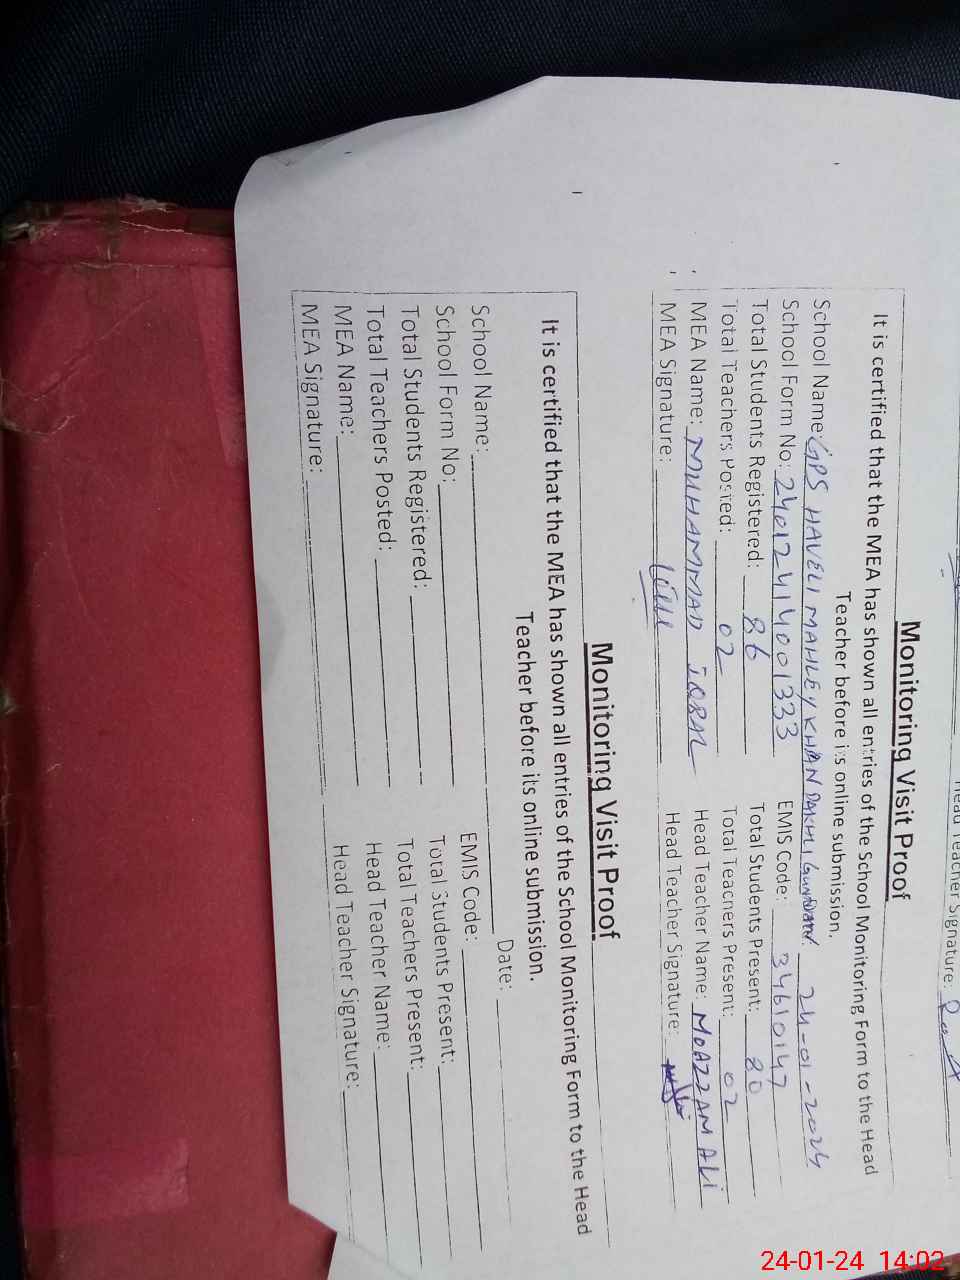 Head Teacher Signature:
Monitoring Visit Proof
It is certified that the MEA has shown all entries of the School Monitoring Form to the Head
Teacher before its online submission.
School Name: GPS HAVELI MAHLEY KHAN DAKHLI 24-01-2024
School Form No: 24012414001333 EMIS Code: 34610147
Total Students Registered: 86 Total Students Present: 80
Total Teachers Posted: 02 Total Teachers Present: 02
MEA Name: MUHAMMAD IQBAL Head Teacher Name: MOAZZAM ALI
MEA Signature: Head Teacher Signature:
Monitoring Visit Proof
It is certified that the MEA has shown all entries of the School Monitoring Form to the Head
Teacher before its online submission.
School Name: Date:
School Form No: EMIS Code:
Total Students Registered: Total Students Present:
Total Teachers Posted: Total Teachers Present:
MEA Name: Head Teacher Name:
MEA Signature: Head Teacher Signature:
24-01-24 14:02